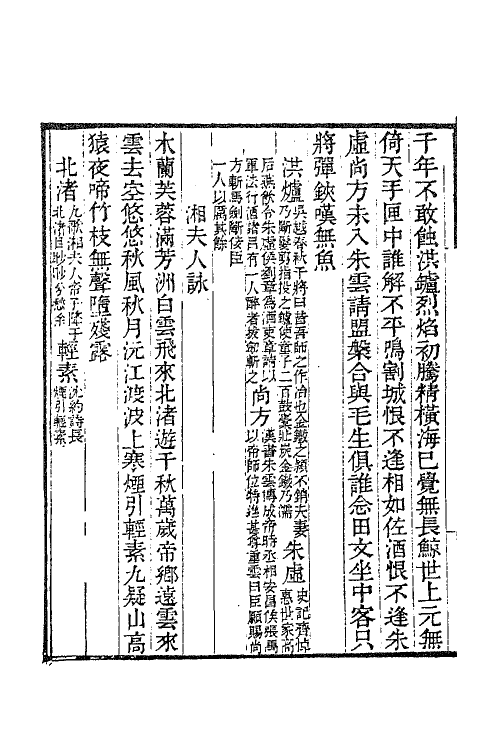 千年不敢蝕洪鑪烈焰初騰精橫海已覺無長鯨世上元無
倚天手匣中誰解不平鳴割城恨不逢相如佐酒恨不逢朱
虛尚方未入朱雲請盟槃合與毛生俱誰念田文坐中客只
將彈鋏嘆無魚
洪爐吳越春秋干將曰昔吾師之作冶也金鐵之穎不銷夫妻乃斷髮剪指投之鑪使童子二百鼓橐壯炭金鐵乃濡朱虛史記齊悼惠世家高
后燕飲令朱虛侯劉章為酒吏章請以軍法行酒諸呂有一人醉者拔劍斬之尚方漢書朱雲傳成帝時丞相安昌侯張禹以帝師位特進甚尊重雲曰臣願賜尚
方斬馬劍斷佞臣一人以厲其餘
湘夫人詠
木蘭芙蓉滿芳洲白雲飛來北渚遊千秋萬歲帝鄉遠雲來
雲去空悠悠秋風秋月沅江渡波上寒煙引輕素九疑山高
猿夜啼竹枝無聲墮殘露
北渚九歌湘夫人帝子降于北渚目眇眇兮愁予輕素沈約詩長煙引輕素